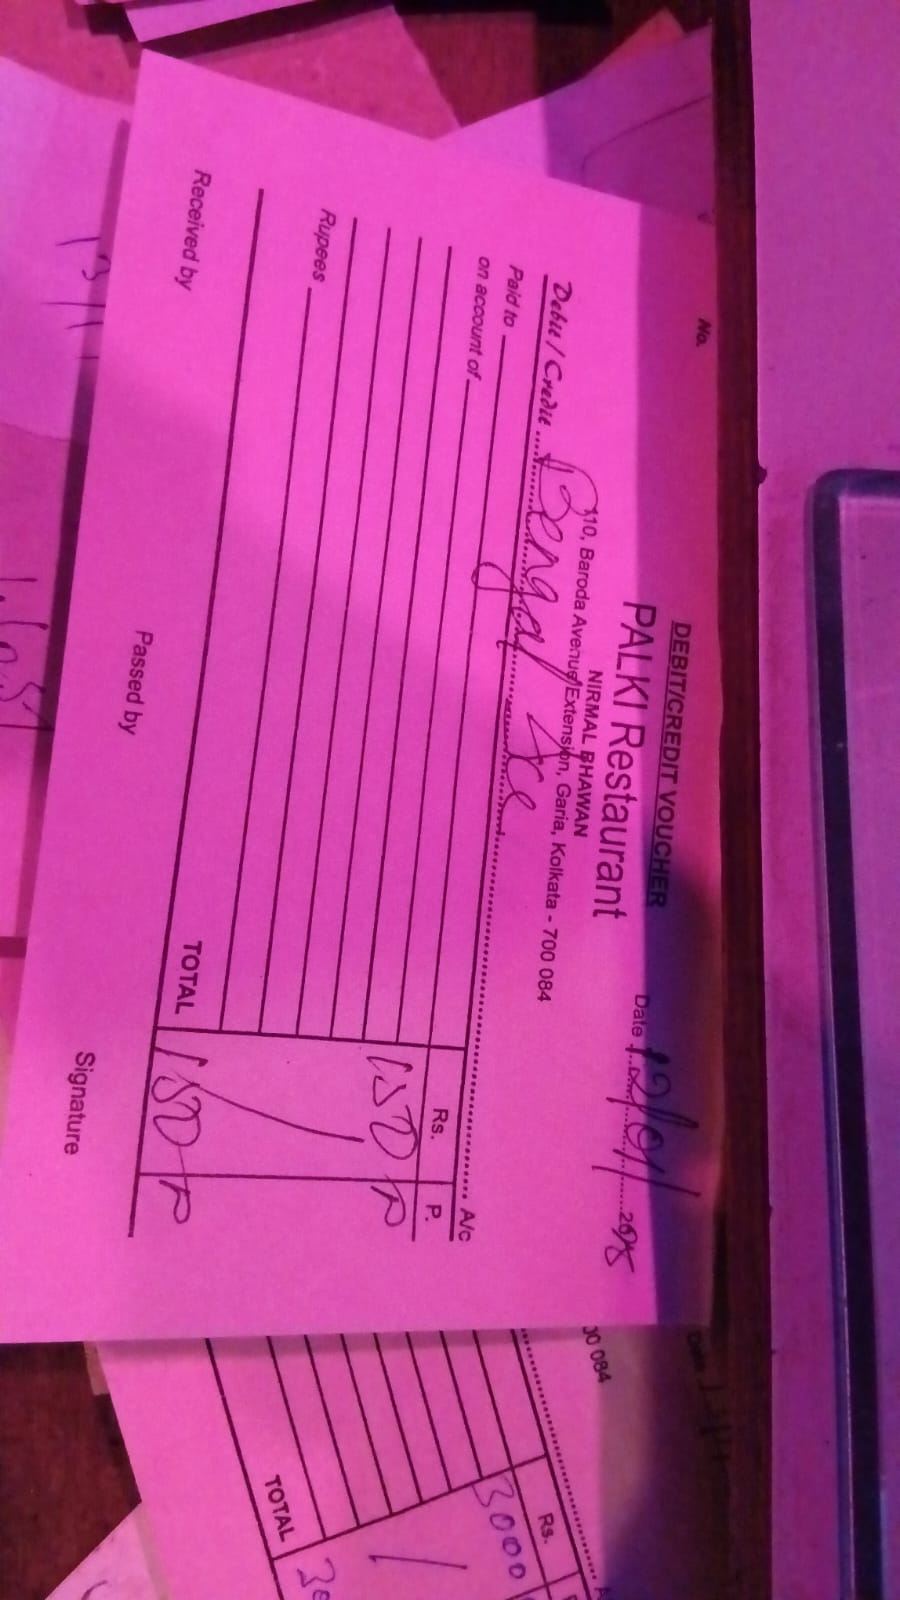 No.
DEBIT/CREDIT VOUCHER
PALKI Restaurant
Date 12/01
NIRMAL BHAWAN
110, Baroda Avenue Extension, Garia, Kolkata - 700 084
Debit / Credit Bengal Ice A/c
Paid to
on account of
Rs. P.
150
Rupees
TOTAL 150
Received by Passed by Signature
00 084
Rs.
3000
TOTAL